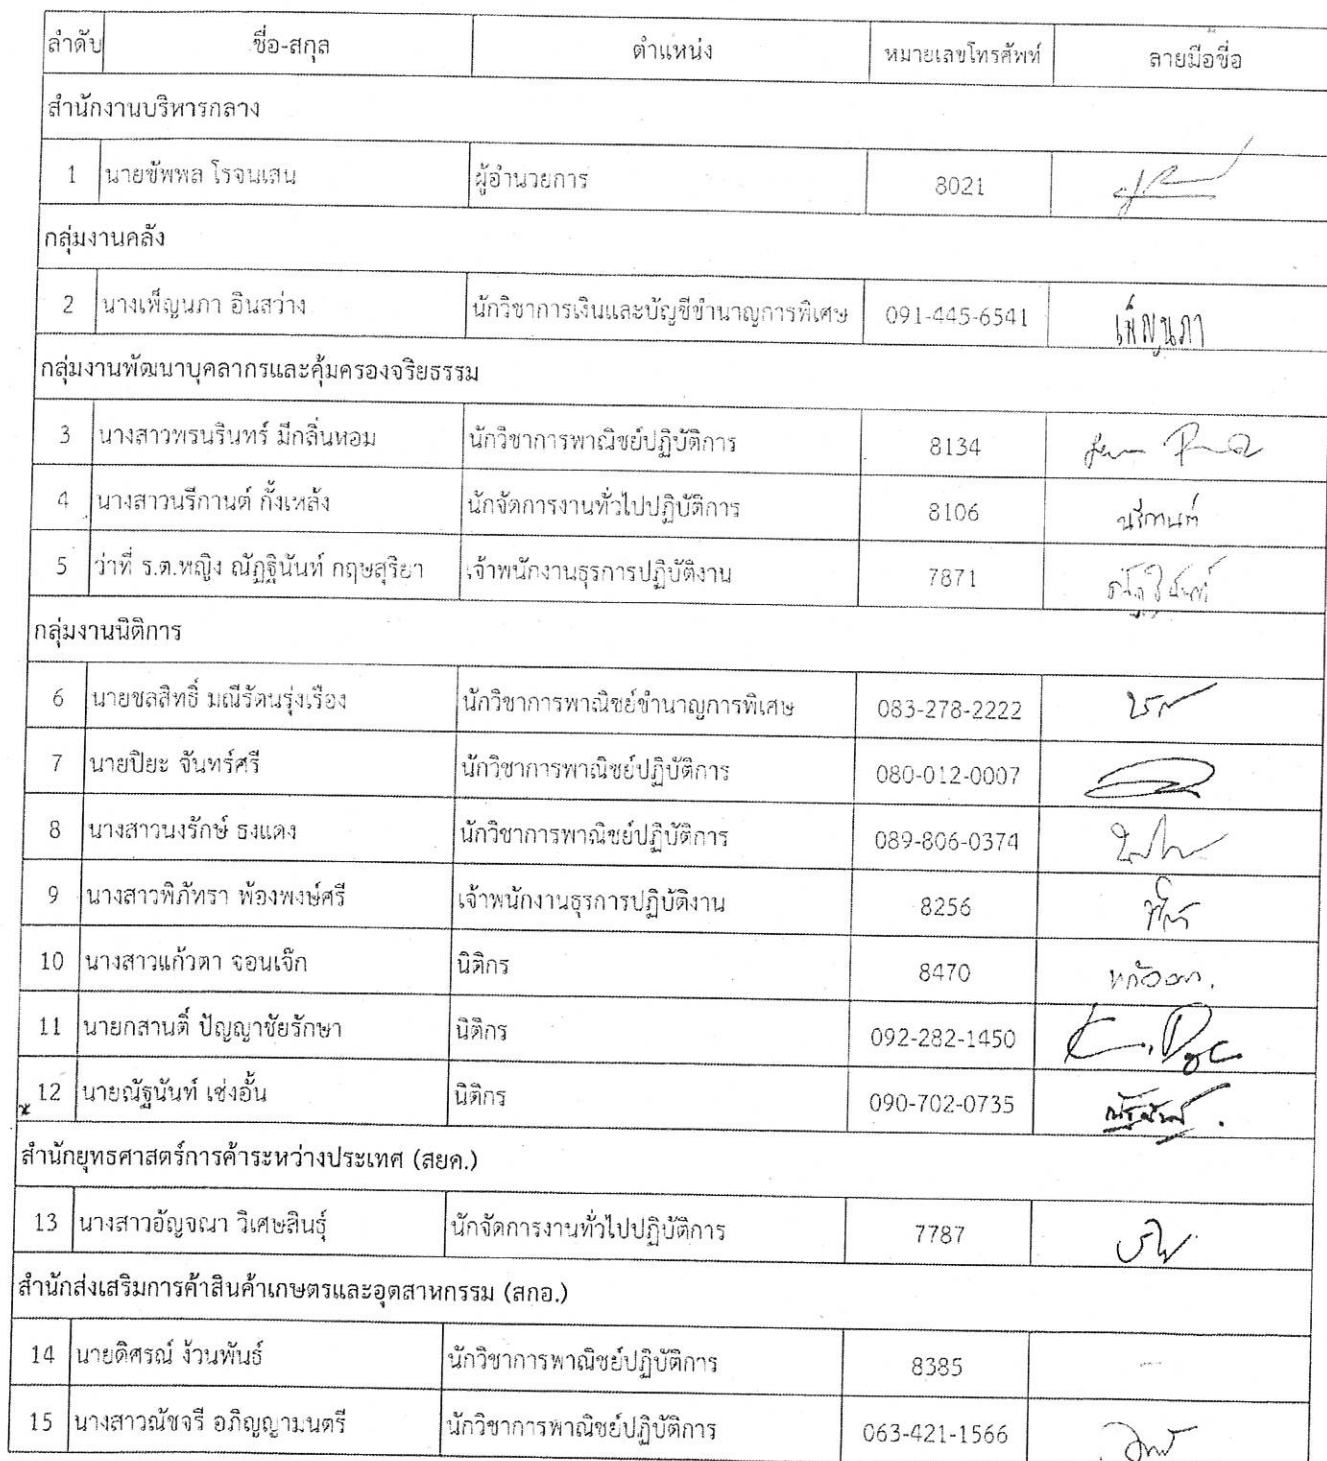 ลำดับ ชื่อ-สกุล ตำแหน่ง หมายเลขโทรศัพท์ ลายมือชื่อ
สำนักงานบริหารกลาง
1 นายขัพพล โรจนเสน ผู้อำนวยการ 8021
กลุ่มงานคลัง
2 นางเพ็ญนภา อินสว่าง นักวิชาการเงินและบัญชีชำนาญการพิเศษ 091-445-6541 เพ็ญนภา
กลุ่มงานพัฒนาบุคลากรและคุ้มครองจริยธรรม
3 นางสาวพรนรินทร์ มีกลิ่นหอม นักวิชาการพาณิชย์ปฏิบัติการ 8134
4 นางสาวนรีกานต์ กั้งเหล้ง นักจัดการงานทั่วไปปฏิบัติการ 8106 นรีกานต์
5 ว่าที่ ร.ต.หญิง ณัฏฐินันท์ กฤษสุริยา เจ้าพนักงานธุรการปฏิบัติงาน 7871
กลุ่มงานนิติการ
6 นายชลสิทธิ์ มณีรัตนรุ่งเรือง นักวิชาการพาณิชย์ชำนาญการพิเศษ 083-278-2222
7 นายปิยะ จันทร์ศรี นักวิชาการพาณิชย์ปฏิบัติการ 080-012-0007
8 นางสาวนงรักษ์ ธงแดง นักวิชาการพาณิชย์ปฏิบัติการ 089-806-0374
9 นางสาวพิภัทรา พ้องพงษ์ศรี เจ้าพนักงานธุรการปฏิบัติงาน 8256
10 นางสาวแก้วตา จอนเจ๊ก นิติกร 8470 แก้วตา.
11 นายกสานติ์ ปัญญาชัยรักษา นิติกร 092-282-1450
12 นายณัฐนันท์ เซ่งอั้น นิติกร 090-702-0735
สำนักยุทธศาสตร์การค้าระหว่างประเทศ (สยค.)
13 นางสาวอัญจณา วิเศษสินธุ์ นักจัดการงานทั่วไปปฏิบัติการ 7787
สำนักส่งเสริมการค้าสินค้าเกษตรและอุตสาหกรรม (สกอ.)
14 นายดิศรณ์ ง้วนพันธ์ นักวิชาการพาณิชย์ปฏิบัติการ 8385
15 นางสาวณัชจรี อภิญญามนตรี นักวิชาการพาณิชย์ปฏิบัติการ 063-421-1566